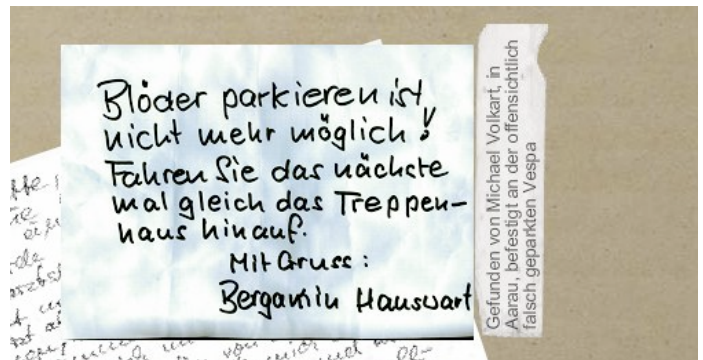 Blöder parkieren ist
nicht mehr möglich!
Fahren Sie das nächste
mal gleich das Treppen-
haus hinauf.
Mit Gruss:
Bergamin Hauswart
Gefunden von Michael Volkart, in
Aarau, befestigt an der offensichtlich
falsch geparkten Vespa